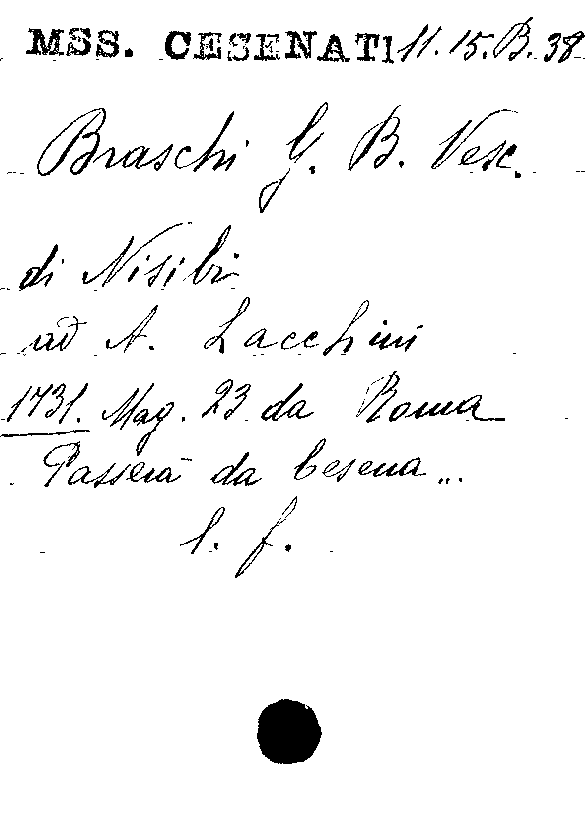 MSS. CESENATI 11. 15. B. 38
Braschi G. B. Vesc.
di Nisibi
ad A. Lacchini
1731. Mag. 23 da Roma
Passerà da Cesena ...
l. f.